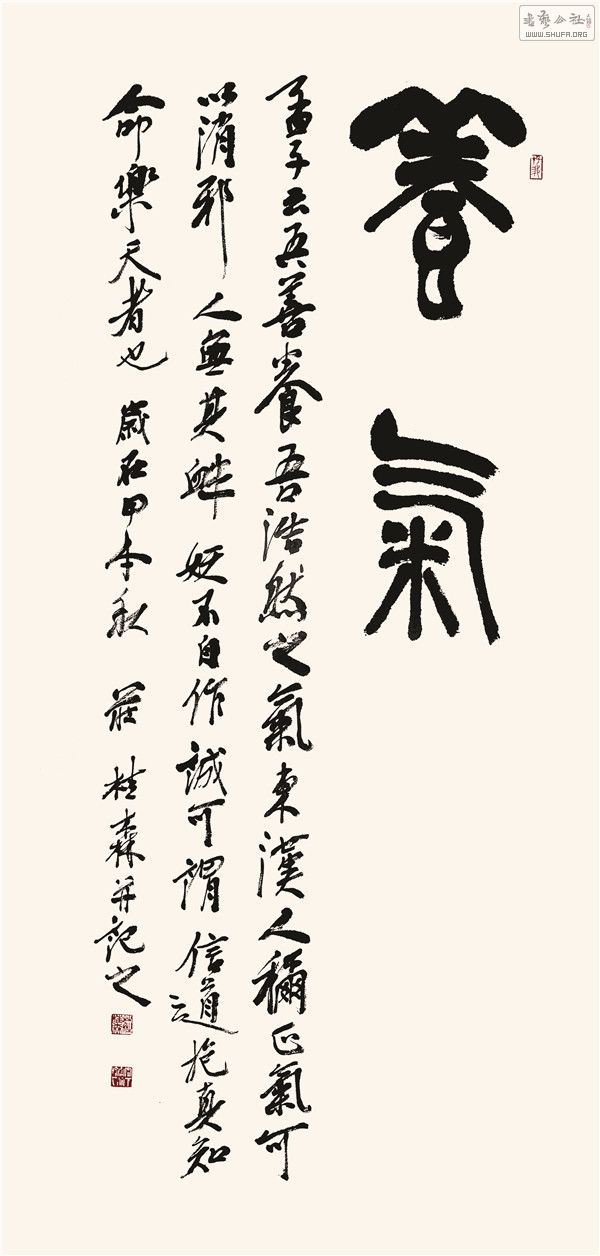 書藝公社
WWW.SHUFA.ORG
養氣
孟子云吾善養吾浩然之氣東漢人稱正氣可
以消邪人無其衅妖不自作誠可謂信道於真知
命樂天者也歲在甲午秋莊桂森并記之